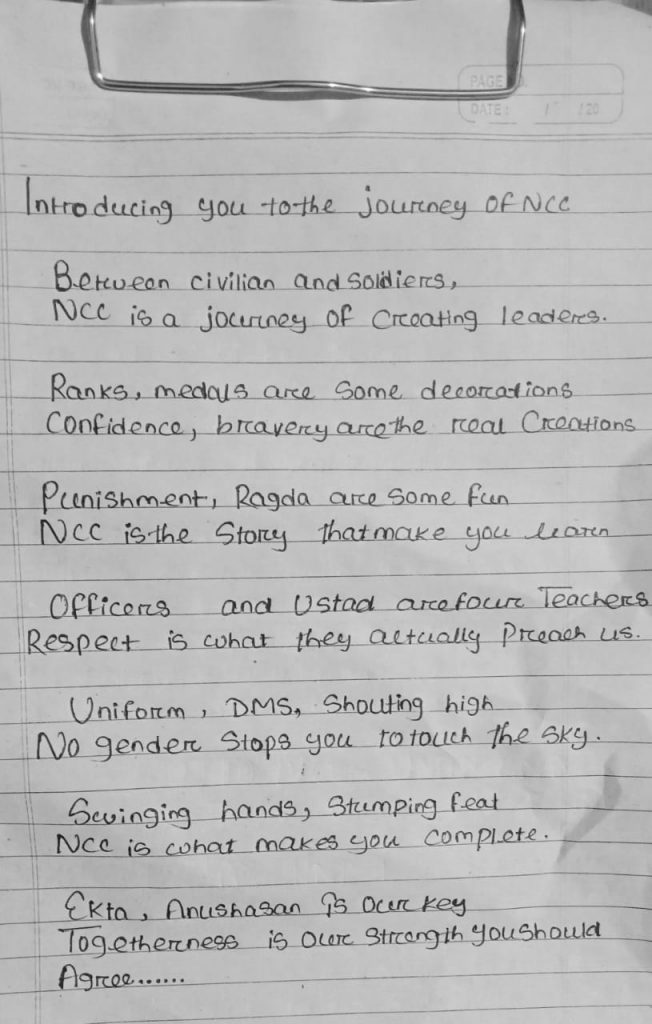 PAGE
DATE: / /20
Introducing you to the journey of NCC
Between civilian and soldiers,
NCC is a journey of Creating leaders.
Ranks, medals are Some decorations
Confidence, bravery are the real Creations
Punishment, Ragda are Some fun
NCC is the Story that make you learn
Officers and Ustad are four Teachers
Respect is what they actually Preach us.
Uniform, DMS, Shouting high
No gender Stops you to touch the sky.
Swinging hands, Stumping feat
NCC is what makes you complete.
Ekta, Anushasan is our key
Togetherness is our Strength you should
Agree......